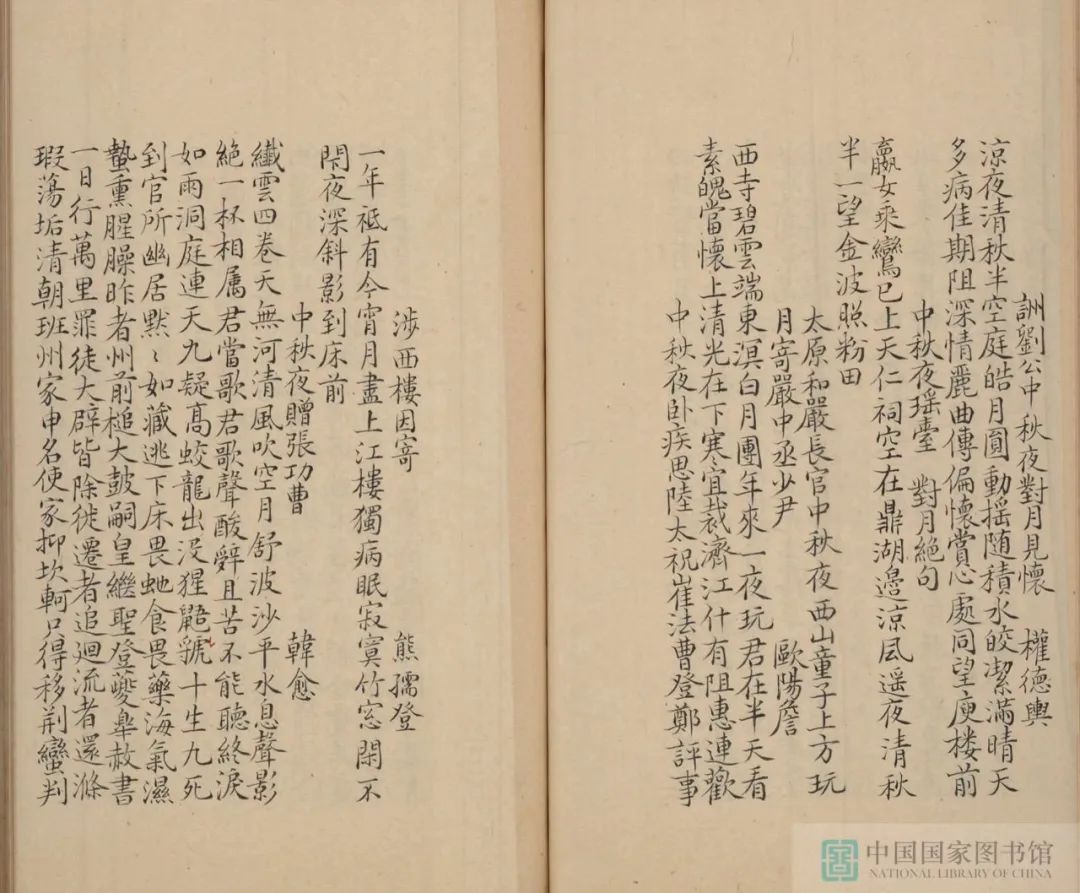 詶劉公中秋夜對月見懷　權德輿
涼夜清秋半空庭皓月圓動搖随積水皎潔滿晴天
多病佳期阻深情麗曲傳偏懷賞心處同望庾楼前
中秋夜瑶臺對月絕句
嬴女乘鸞已上天仁祠空在鼎湖邉涼風遥夜清秋
半一望金波照粉田
太原和嚴長官中秋夜西山童子上方玩
月寄嚴中丞少尹　歐陽詹
西寺碧雲端東溟白月團年來一夜玩君在半天看
素魄當懷上清光在下寒宜裁濟江什有阻惠連歡
中秋夜卧疾思陸太祝崔法曹登鄭評事
涉西樓因寄　熊孺登
一年祗有今宵月盡上江樓獨病眠寂寞竹窓閑不
閇夜深斜影到床前
中秋夜贈張功曹　韓愈
纖雲四卷天無河清風吹空月舒波沙平水息聲影
絕一杯相属君當歌君歌聲酸辭且苦不能聽終淚
如雨洞庭連天九疑髙蛟龍出没猩鼯號十生九死
到官所幽居默〻如藏逃下床畏虵食畏藥海氣濕
蟄熏腥臊昨者州前槌大皷嗣皇繼聖登夔皋赦書
一日行萬里罪徒大辟皆除徙遷者追廻流者還滌
瑕蕩垢清朝班州家申名使家抑坎軻只得移荆蠻判
中国国家图书馆
NATIONAL LIBRARY OF CHINA